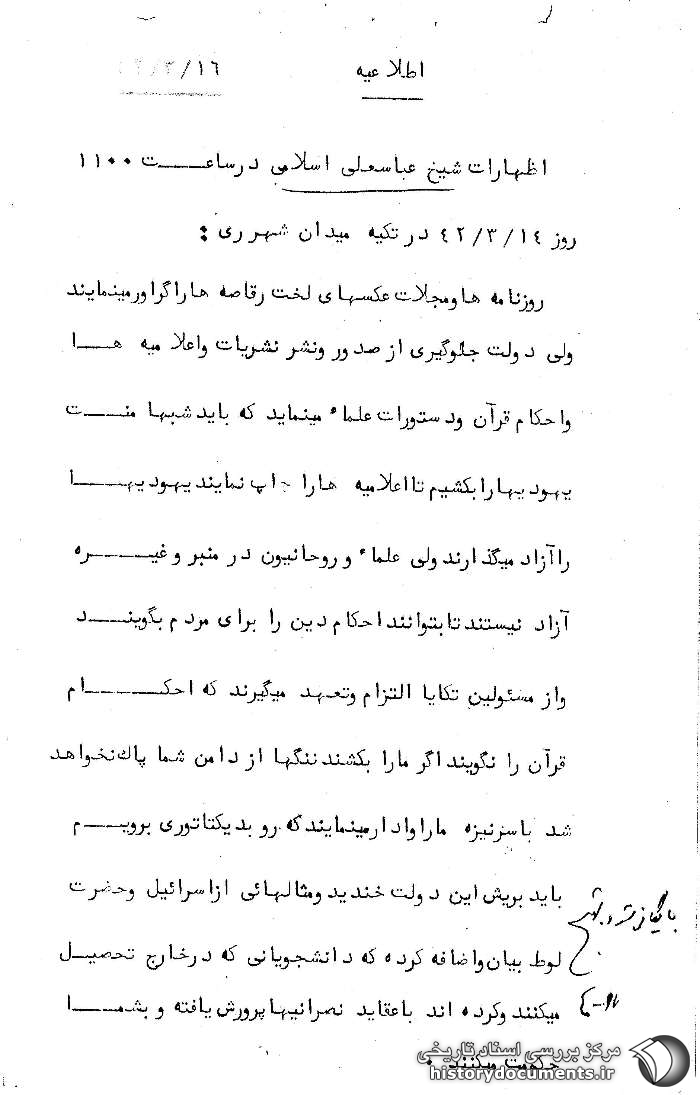 اطلاعیه ۴۲/۳/۱۶
اظهارات شیخ عباسعلی اسلامی درساعت ۱۱۰۰
روز ۴۲/۳/۱۴ در تکیه میدان شهرری :
روزنامه ها ومجلات عکسهای لخت رقاصه هاراگراورمینمایند
ولی دولت جلوگیری از صدور ونشر نشریات واعلامیه هـا
واحکام قرآن ودستورات علماء مینماید که باید شبها منت
یهودیهارابکشیم تااعلامیه هارا چاپ نمایند یهودیها
راآزاد میگذارند ولی علماء و روحانیون در منبر وغیره
آزاد نیستند تابتوانند احکام دین را برای مردم بگویند
واز مسئولین تکایا التزام وتعهد میگیرند که احکام
قرآن را نگویند اگر مارا بکشند ننگها از دامن شما پاك نخواهد
شد باسرنیزه ماراوادارمینمایند که رو بدیکتاتوری برویم
باید بریش این دولت خندید ومثالهائی ازاسرائیل وحضرت
لوط بیان واضافه کرده که دانشجویانی که درخارج تحصیل
میکنند وکرده اند باعقاید نصرانیها پرورش یافته و بشما
حکومت میکنند .
مرکز بررسی اسناد تاریخی
historydocuments.ir